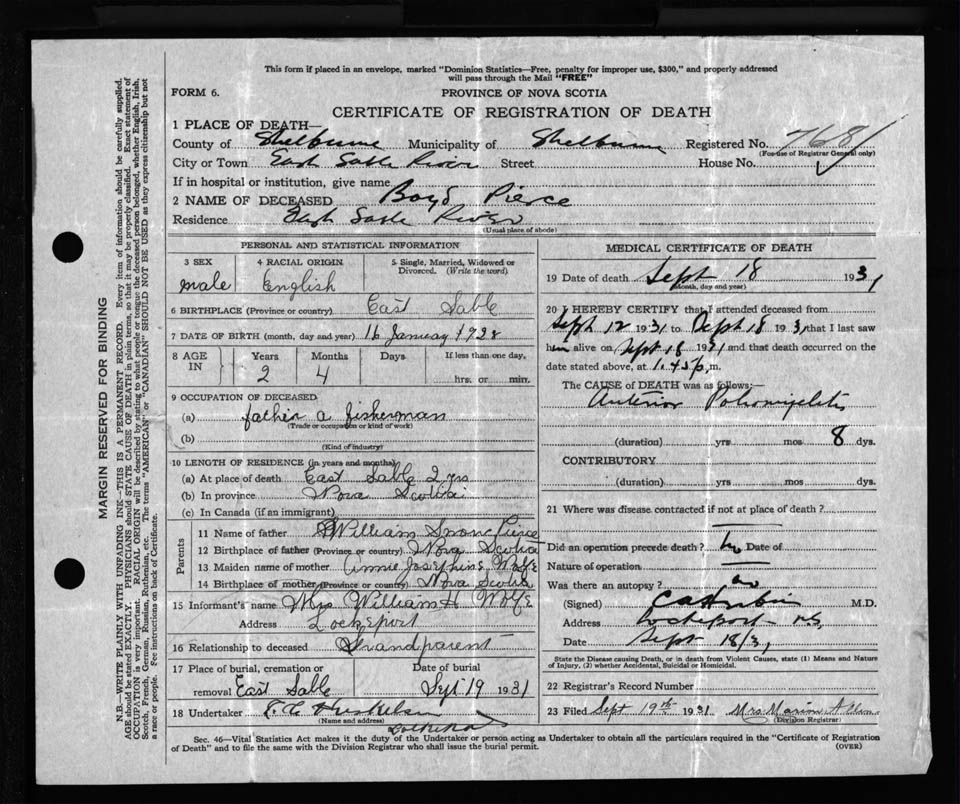 This form if placed in an envelope, marked "Dominion Statistics—Free, penalty for improper use, $300," and properly addressed
will pass through the Mail "FREE"
FORM 6.
PROVINCE OF NOVA SCOTIA
CERTIFICATE OF REGISTRATION OF DEATH
1 PLACE OF DEATH—
County of Shelburne Municipality of Shelburne Registered No. 7681
(For use of Registrar General only)
City or Town East Sable River Street House No.
If in hospital or institution, give name
2 NAME OF DECEASED Boyd Pierce
Residence East Sable River
(Usual place of abode)
PERSONAL AND STATISTICAL INFORMATION
3 SEX 4 RACIAL ORIGIN 5 Single, Married, Widowed or
Divorced. (Write the word)
male English
6 BIRTHPLACE (Province or country) East Sable
7 DATE OF BIRTH (month, day and year) 16 January 1928
8 AGE IN Years Months Days If less than one day,
2 4 hrs. or min.
9 OCCUPATION OF DECEASED
(a) father a fisherman
(Trade or occupation or kind of work)
(b)
(Kind of industry)
10 LENGTH OF RESIDENCE (in years and months)
(a) At place of death East Sable 2 yrs
(b) In province Nova Scotia
(c) In Canada (if an immigrant)
Parents
11 Name of father William Pierce
12 Birthplace of father (Province or country) Nova Scotia
13 Maiden name of mother Annie Josephine Wolfe
14 Birthplace of mother (Province or country) Nova Scotia
15 Informant's name Mrs William H Wolfe
Address Lockeport
16 Relationship to deceased Grandparent
17 Place of burial, cremation or Date of burial
removal East Sable Sept 19 1931
18 Undertaker
(Name and address)
MEDICAL CERTIFICATE OF DEATH
19 Date of death Sept 18 1931
(Month, day and year)
20 I HEREBY CERTIFY that I attended deceased from
Sept 12 1931 to Sept 18 1931 that I last saw
him alive on Sept 18 1931 and that death occurred on the
date stated above, at 1.45 p.m.
The CAUSE of DEATH was as follows:—
Anterior Poliomyelitis
(duration) yrs mos 8 dys.
CONTRIBUTORY
(duration) yrs mos dys.
21 Where was disease contracted if not at place of death?
Did an operation precede death? no Date of
Nature of operation
Was there an autopsy? no
(Signed) M.D.
Address Lockeport N.S.
Date Sept 18/31
State the Disease causing Death, or in death from Violent Causes, state (1) Means and Nature
of Injury, (2) whether Accidental, Suicidal or Homicidal.
22 Registrar's Record Number
23 Filed Sept 19th 1931 Mrs. Marion
(Division Registrar)
Sec. 46—Vital Statistics Act makes it the duty of the Undertaker or person acting as Undertaker to obtain all the particulars required in the "Certificate of Registration
of Death" and to file the same with the Division Registrar who shall issue the burial permit.
(OVER)
MARGIN RESERVED FOR BINDING
N.B.—WRITE PLAINLY WITH UNFADING INK—THIS IS A PERMANENT RECORD. Every item of information should be carefully supplied.
AGE should be stated EXACTLY. PHYSICIANS should STATE CAUSE OF DEATH in plain terms, so that it may be properly classified. Exact statement of
OCCUPATION is very important. RACIAL ORIGIN will be described by stating to what people or tongue the deceased person belonged, whether English, Irish,
Scotch, French, German, Russian, Ruthenian, etc. The terms "AMERICAN" or "CANADIAN" SHOULD NOT BE USED as they express citizenship but not
a race or people. See instructions on back of Certificate.